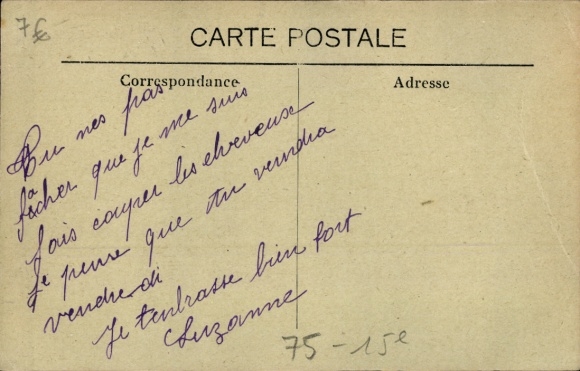 7€
CARTE POSTALE
Correspondance
Adresse
Tu nes pas
fâcher que je me suis
fais couper les cheveux
je pense que tu viendra
vendredi
Je tembrasse bien fort
Suzanne
75 - 15e